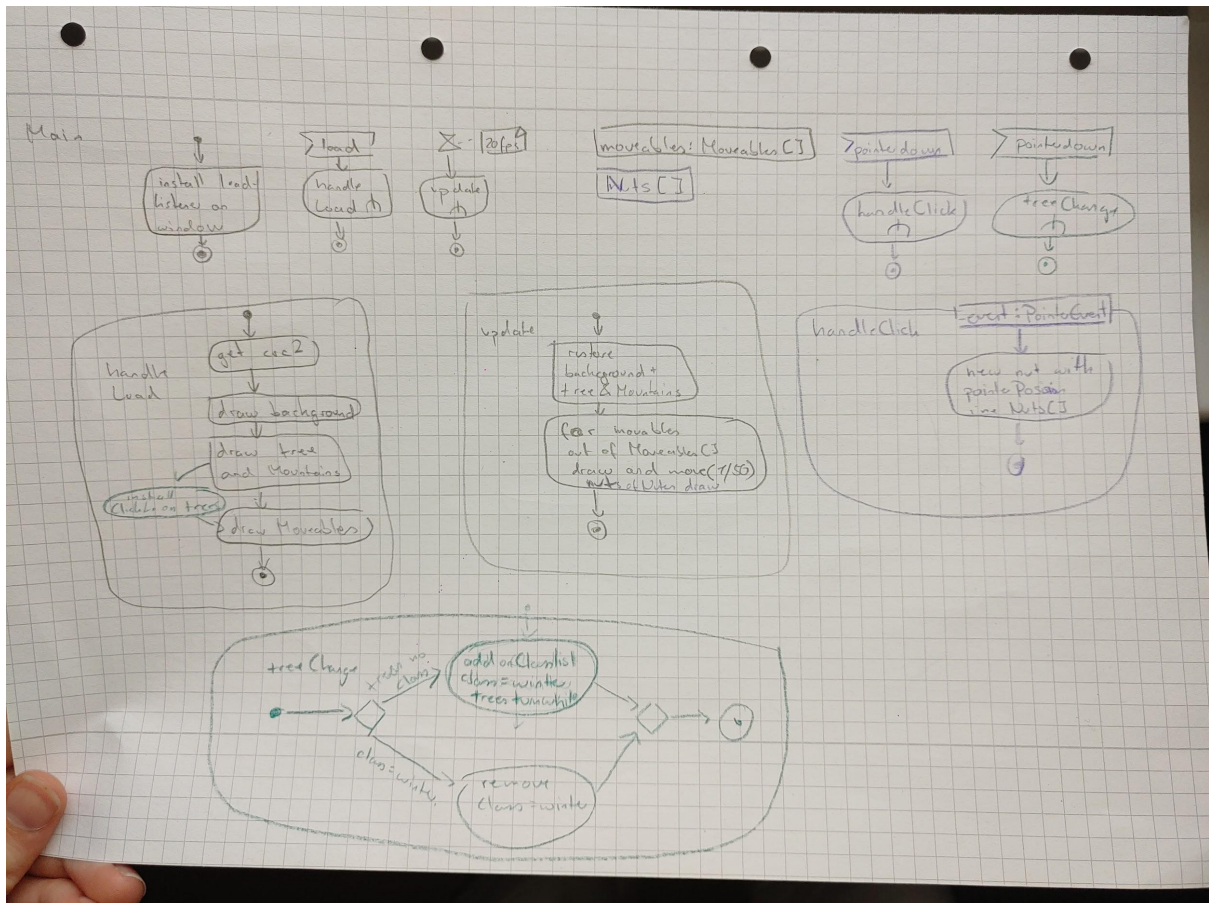 Main
install load
listener on
window
load
handle
Load
20fps
update
moveables: Moveables[]
Nuts[]
pointerdown
handleClick
pointerdown
treeChange
handle
Load
get crc2
draw background
draw tree
and Mountains
install
on trees
draw Moveables
update
restore
background +
tree & Mountains
for movables
out of Moveables[]
draw and move(1/50)
nuts of draw
handleClick
event: PointerEvent
new nut with
Nuts[]
treeChange
no
class
add on Classlist
class=winter,
trees turn white
class=winter
remove
class=winter